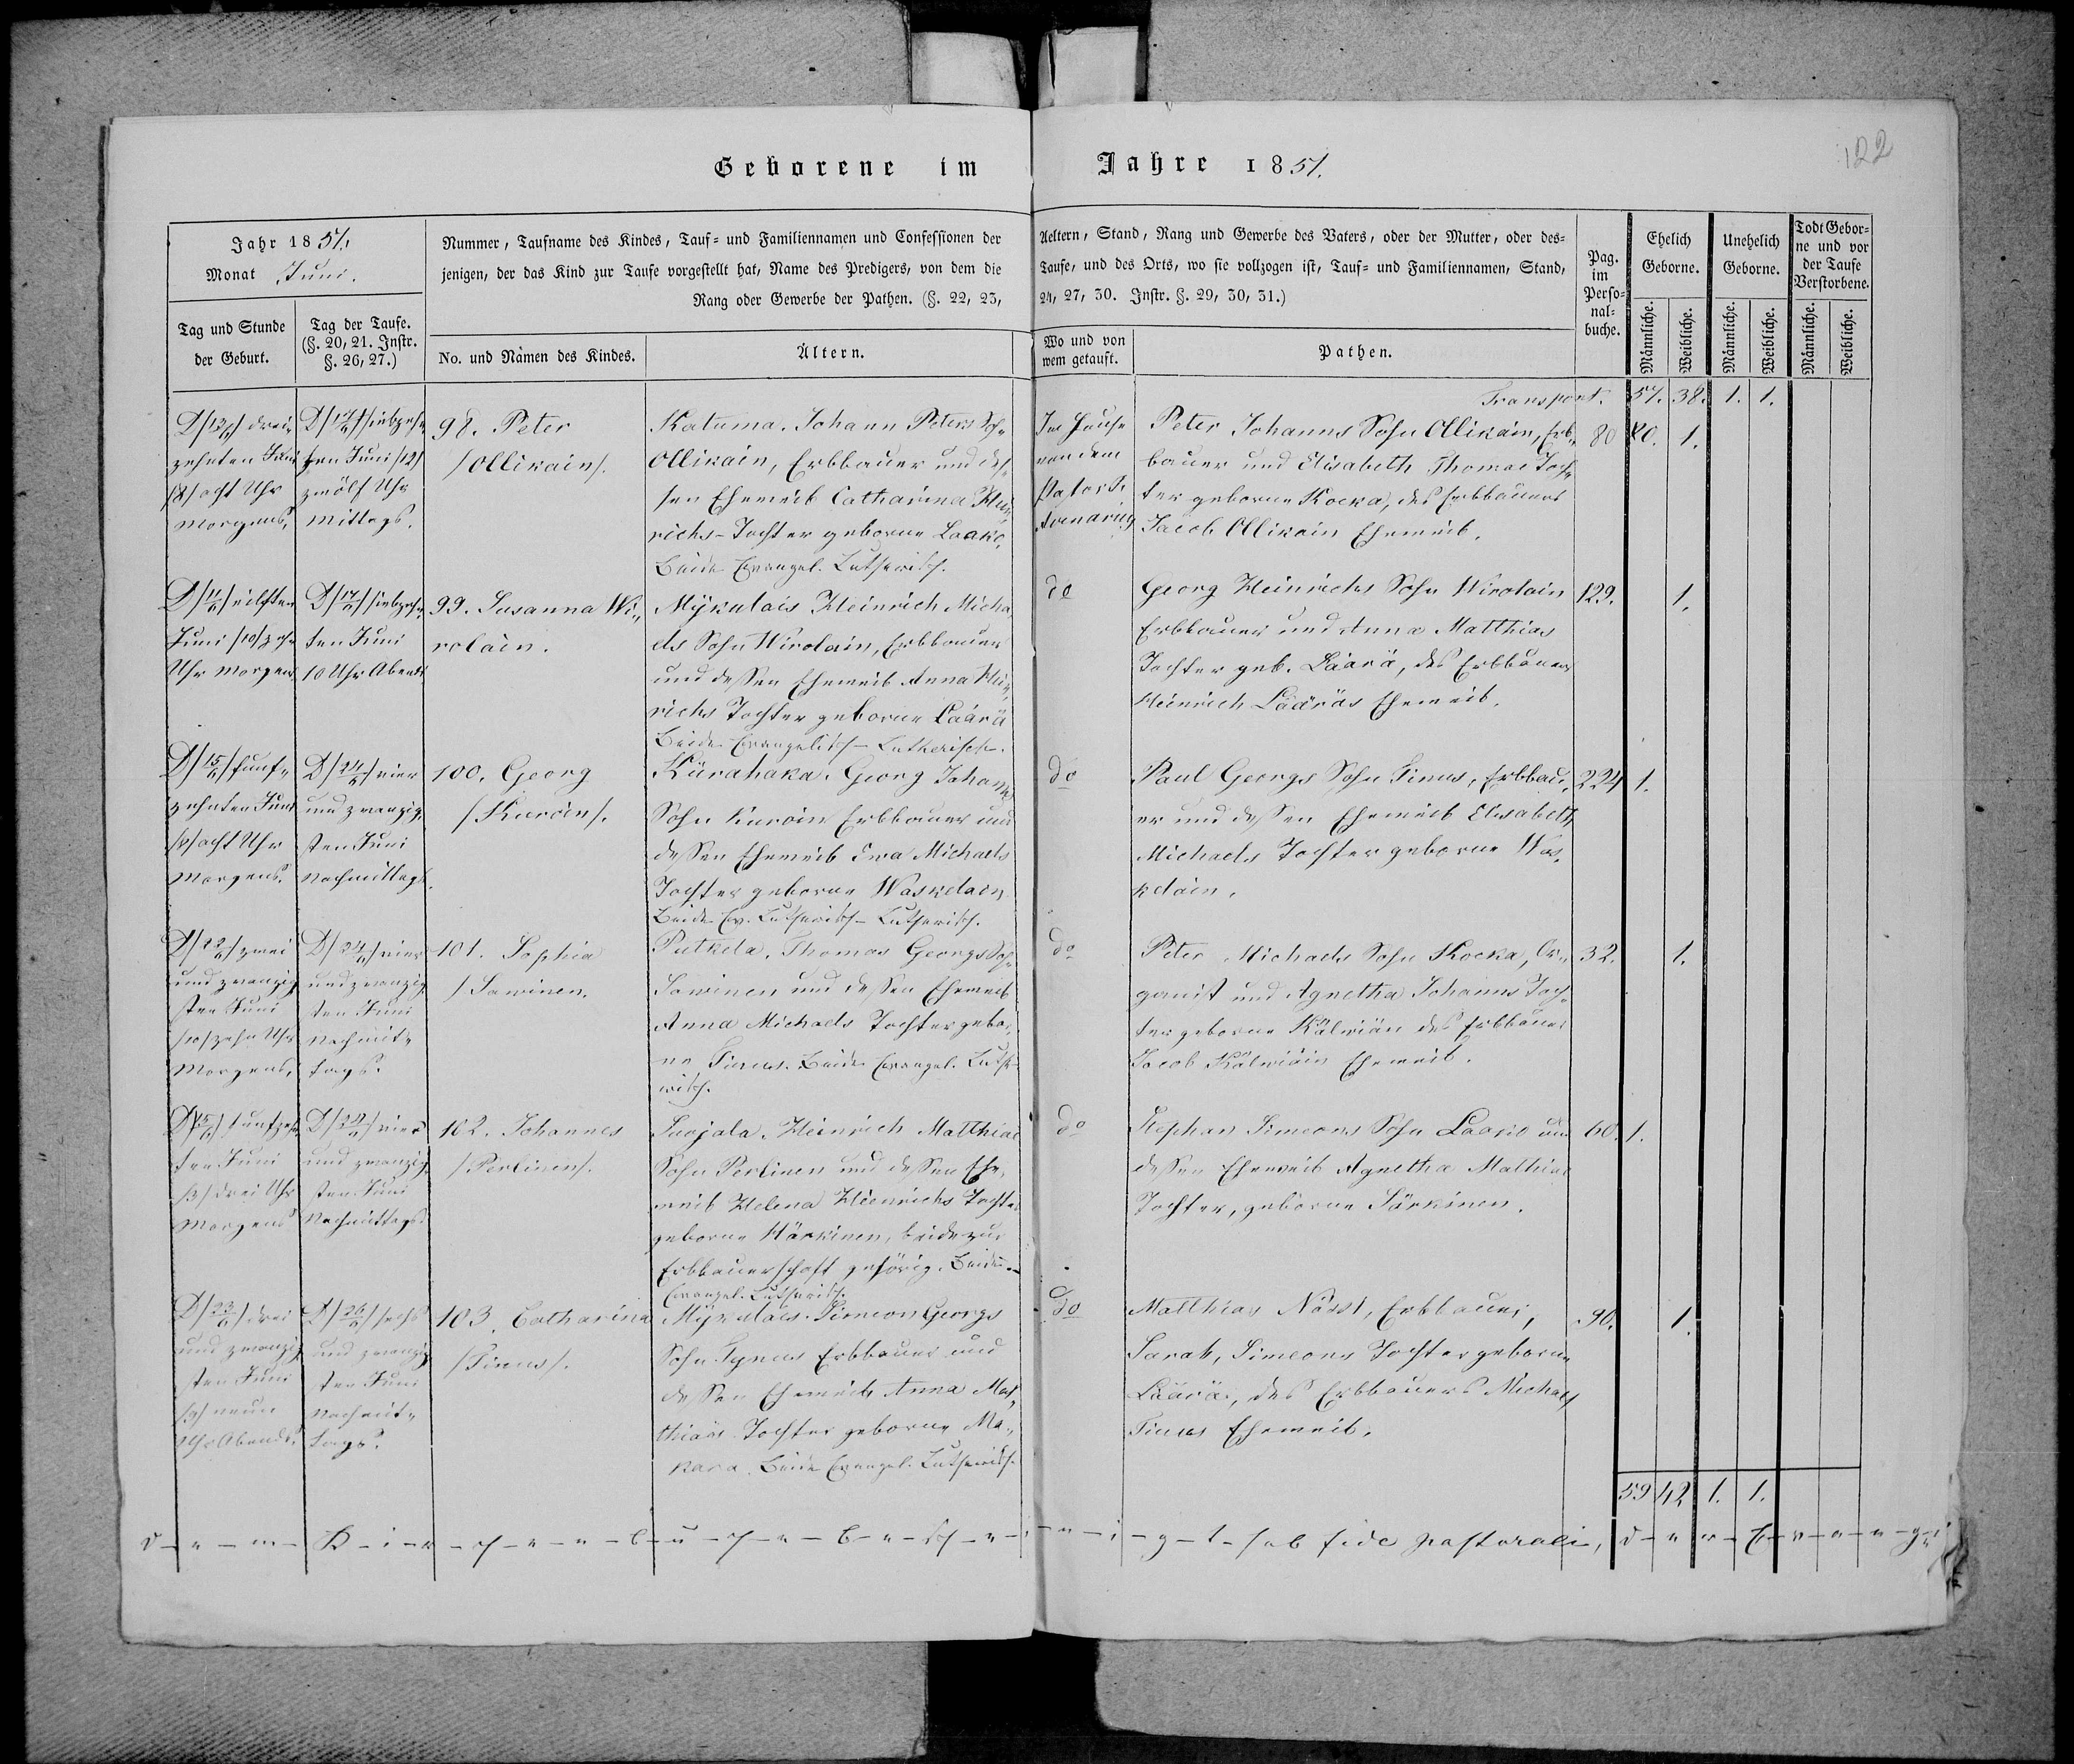 122
Geborene im Jahre 1851.
Jahr 1851.
Monat Juni.
Tag und Stunde
der Geburt.
Tag der Taufe.
(§. 20, 21. Instr.
§. 26, 27.)
Nummer, Taufname des Kindes, Tauf- und Familiennamen und Confessionen der
jenigen, der das Kind zur Taufe vorgestellt hat, Name des Predigers, von dem die
Rang oder Gewerbe der Pathen. (§. 22, 23,
No. und Namen des Kindes.
Ältern.
Aeltern, Stand, Rang und Gewerbe des Vaters, oder der Mutter, oder des-
Taufe, und des Orts, wo sie vollzogen ist, Tauf- und Familiennamen, Stand,
24, 27, 30. Instr. §. 29, 30, 31.)
Wo und von
wem getauft.
Pathen.
Pag.
im
Perso-
nal-
buche.
Ehelich
Geborne.
Unehelich
Geborne.
Todt Gebor-
ne und vor
der Taufe
Verstorbene.
Männliche.
Weibliche.
Männliche.
Weibliche.
Männliche.
Weibliche.
Transport. 57. 38. 1. 1.
D/13/6/ drei-
zehnten Juni
/8/ acht Uhr
Morgens.
D/17/6/ siebzehn-
ten Juni /12/
zwölf Uhr
Mittags.
98. Peter
/Ollikain/.
Katuma. Johann Peters Sohn
Ollikain, Erbbauer und des-
sen Eheweib Catharina Hein-
richs-Tochter geborne Laako,
Beide Evangel. Lutherisch.
Im Hause
von dem
Pastor
Avenarius
Peter Johanns Sohn Ollikain, Erb-
bauer und Elisabeth Thomas Toch-
ter geborne Kocka, des Erbbauers
Jacob Ollikain Eheweib.
80
1.
D/11/6/ eilften
Juni /10/ zehn
Uhr Morgens
D/17/6/ siebzehn-
ten Juni
10 Uhr Abends
99. Susanna Wi-
rolain.
Mÿkulais Heinrich Micha-
els Sohn Wirolain, Erbbauer
und dessen Eheweib Anna Hein-
richs Tochter geborne Läärä
Beide Evangelisch-Lutherisch.
do
Georg Heinrichs Sohn Wirolain
Erbbauer und Anna Matthias
Tochter geb. Läärä, des Erbbauers
Heinrich Lääräs Eheweib.
129.
1.
D/15/6/ funf-
zehnten Juni
/8/ acht Uhr
Morgens.
D/24/6/ vier
und zwanzig-
sten Juni
Nachmittags.
100. Georg
/Kuroin/.
Kürahaka. Georg Johanns
Sohn Kuroin Erbbauer und
dessen Eheweib Ewa Michaels
Tochter geborne Waskelain
Beide Ev. Lutherisch-Lutherisch.
do
Paul Georgs Sohn Tinus, Erbbau-
er und dessen Eheweib Elisabeth
Michaels Tochter geborne Was-
kelain.
224
1.
D/22/6/ zwei
und zwanzig-
sten Juni
/10/ zehn Uhr
Morgens.
D/24/6/ vier
und zwanzig-
sten Juni
Nachmit-
tags.
101. Sophia
/Sawinen.
Putkela. Thomas Georgs Sohn
Sawinen und dessen Eheweib
Anna Michaels Tochter gebor-
ne Tinus. Beide Evangel. Luthe-
risch.
do
Peter Michaels Sohn Kocka, Or-
ganist und Agnetha Johanns Toch-
ter geborne Kälwiän des Erbbauers
Jacob Kälwiäin Eheweib.
32.
1.
D/15/6/ funfzehn-
ten Juni
/3/ drei Uhr
Morgens
D/24/6/ vier
und zwanzig-
sten Juni
Nachmittags.
102. Johannes
/Perlinen/.
Surjala. Heinrich Matthias
Sohn Perlinen und dessen Ehe-
weib Helena Heinrichs Tochter
geborne Härkinen, beide zur
Erbbauerschaft gehörig. Beide
Evangel. Lutherisch.
do
Stephan Simeons Sohn Laako und
dessen Eheweib Agnetha Mathias
Tochter, geborne Särkinen.
60.
1.
D/23/6/ drei
und zwanzig-
sten Juni
/9/ neun
Uhr Abends.
D/26/6/ sechs
und zwanzig-
sten Juni
Nachmit-
tags.
103. Catharina
/Tinus/.
Mÿkulais. Simeon Georgs
Sohn Tynus Erbbauer und
dessen Eheweib Anna Mat-
thias Tochter geborne Ma-
kara. Beide Evangel. Lutherisch.
do
Matthias Nässi, Erbbauer,
Sarah, Simeons Tochter geborne
Läärä, des Erbbauers Michael
Tinus Eheweib.
90.
1.
59 42 1. 1.
d-e-m K-i-r-ch-e-n-b-u-ch-e b-e-sch-e-i-n-i-g-t sub fide pastorali, d-e-r E-v-a-n-g-